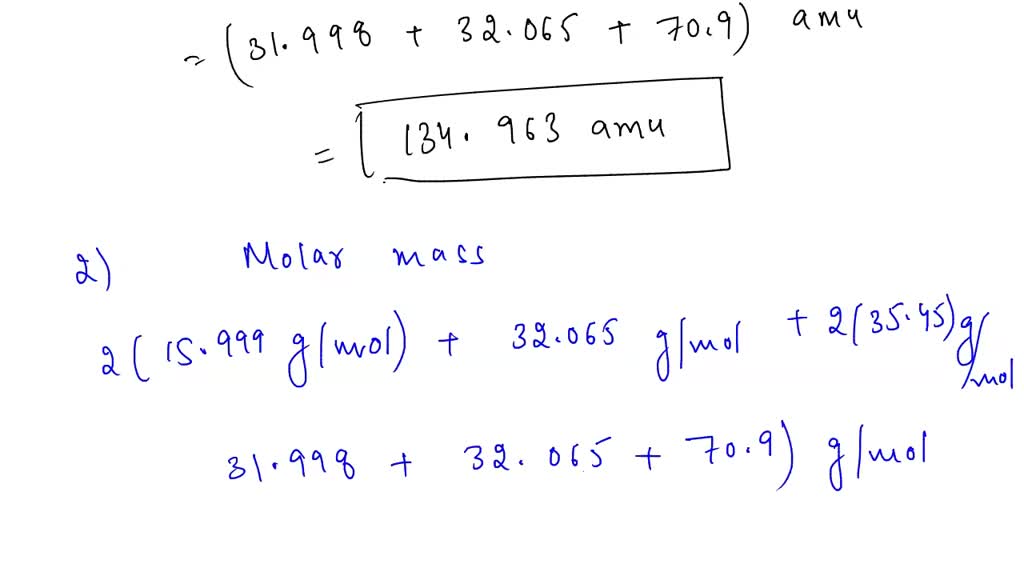 = (31.998 + 32.065 + 70.9) amu
= 134.963 amu
2) Molar mass
2(15.999 g/mol) + 32.065 g/mol + 2(35.45) g/mol
31.998 + 32.065 + 70.9) g/mol